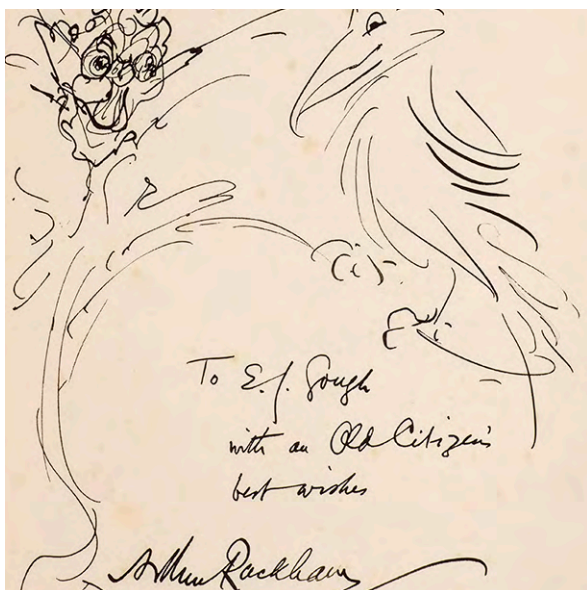 To E. J. Gough
with an Old Citizen's
best wishes
Arthur Rackham